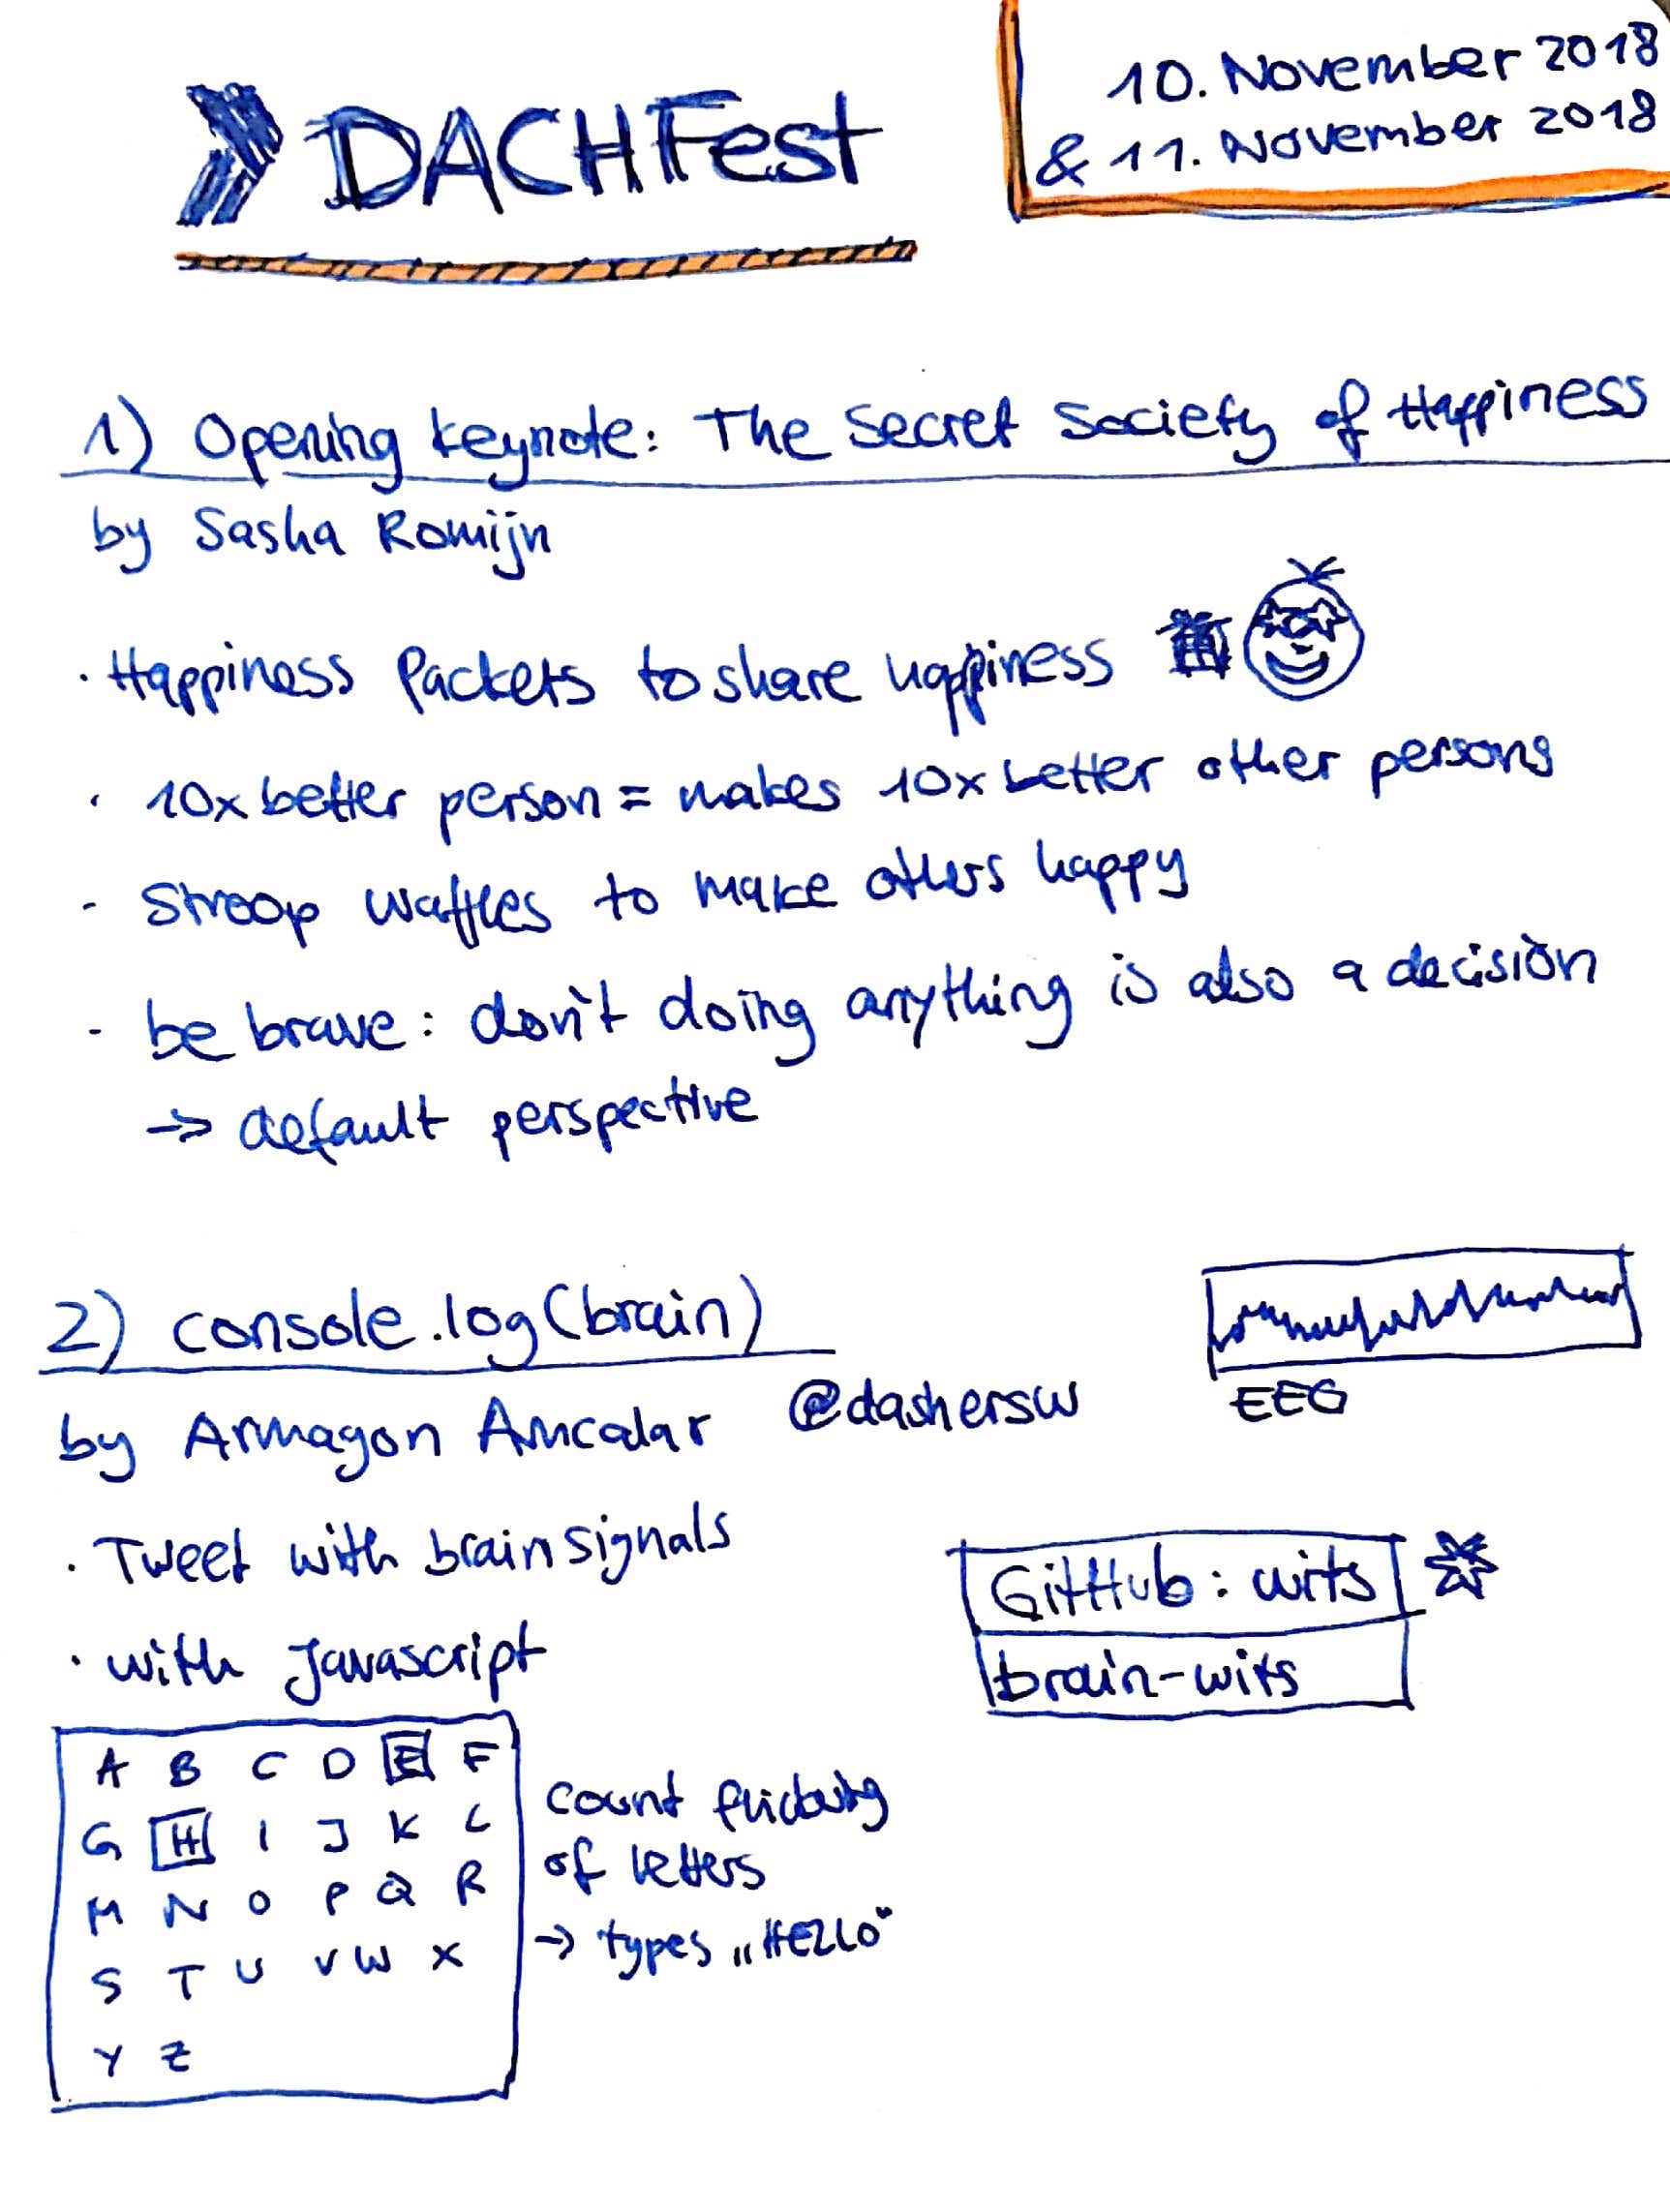 DACHFest
10. November 2018
& 11. November 2018
1) Opening keynote: The Secret Society of Happiness
by Sasha Romijn
· Happiness Packets to share happiness
· 10x better person = makes 10x better other persons
- Stroop waffles to make others happy
- be brave: don't doing anything is also a decision
-> default perspective
2) console.log(brain)
EEG
by Armagon Amcalar @dashersw
· Tweet with brainsignals
GitHub: wits
· with Javascript
brain-wits
A B C D E F
G H I J K L
M N O P Q R
S T U V W X
Y Z
count flickering
of letters
-> types „HELLO"